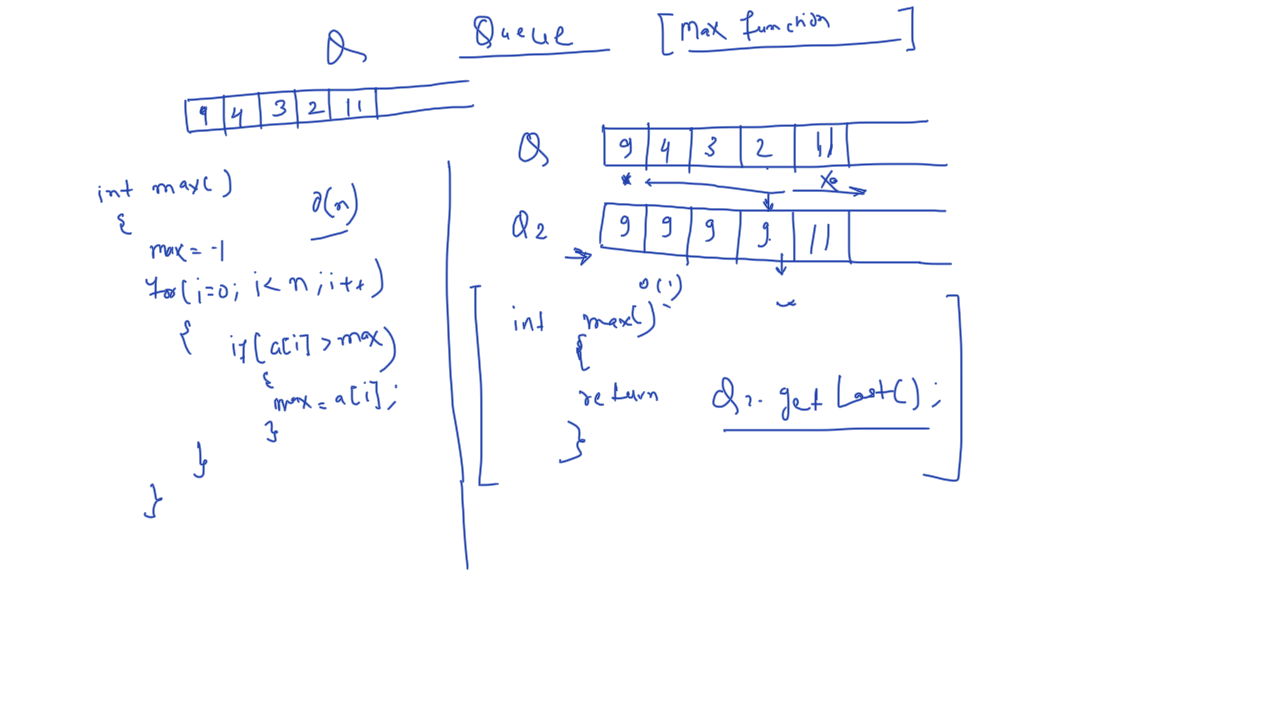 Queue [Max function]
Q
9 4 3 2 11
int max()
{
O(n)
max = -1
for(i=0; i< n; i++)
{
if(a[i] > max)
{
max = a[i];
}
}
}
Q 9 4 3 2 11
Q2 9 9 9 9 11
O(1)
int max()
{
return Q2. getLast();
}